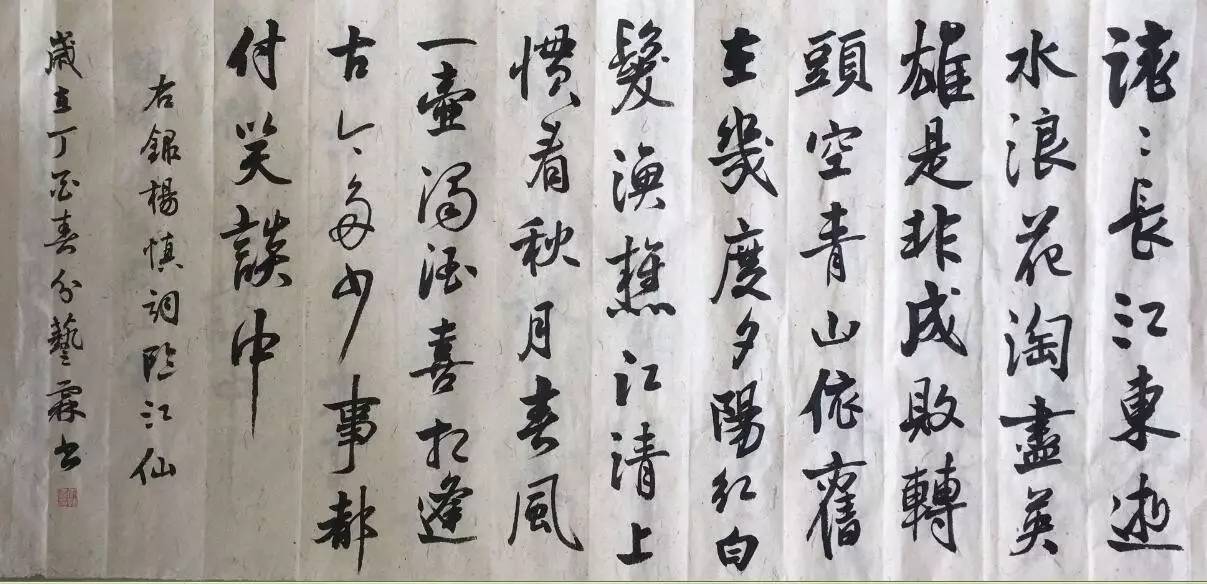 滚〻長江東逝
水浪花淘盡英
雄是非成敗轉
頭空青山依舊
在幾度夕陽紅白
髮漁樵江清上
慣看秋月春風
一壺濁酒喜相逢
古今多少事都
付笑談中
右錄楊慎詞臨江仙
歲在丁酉春分藝霖書